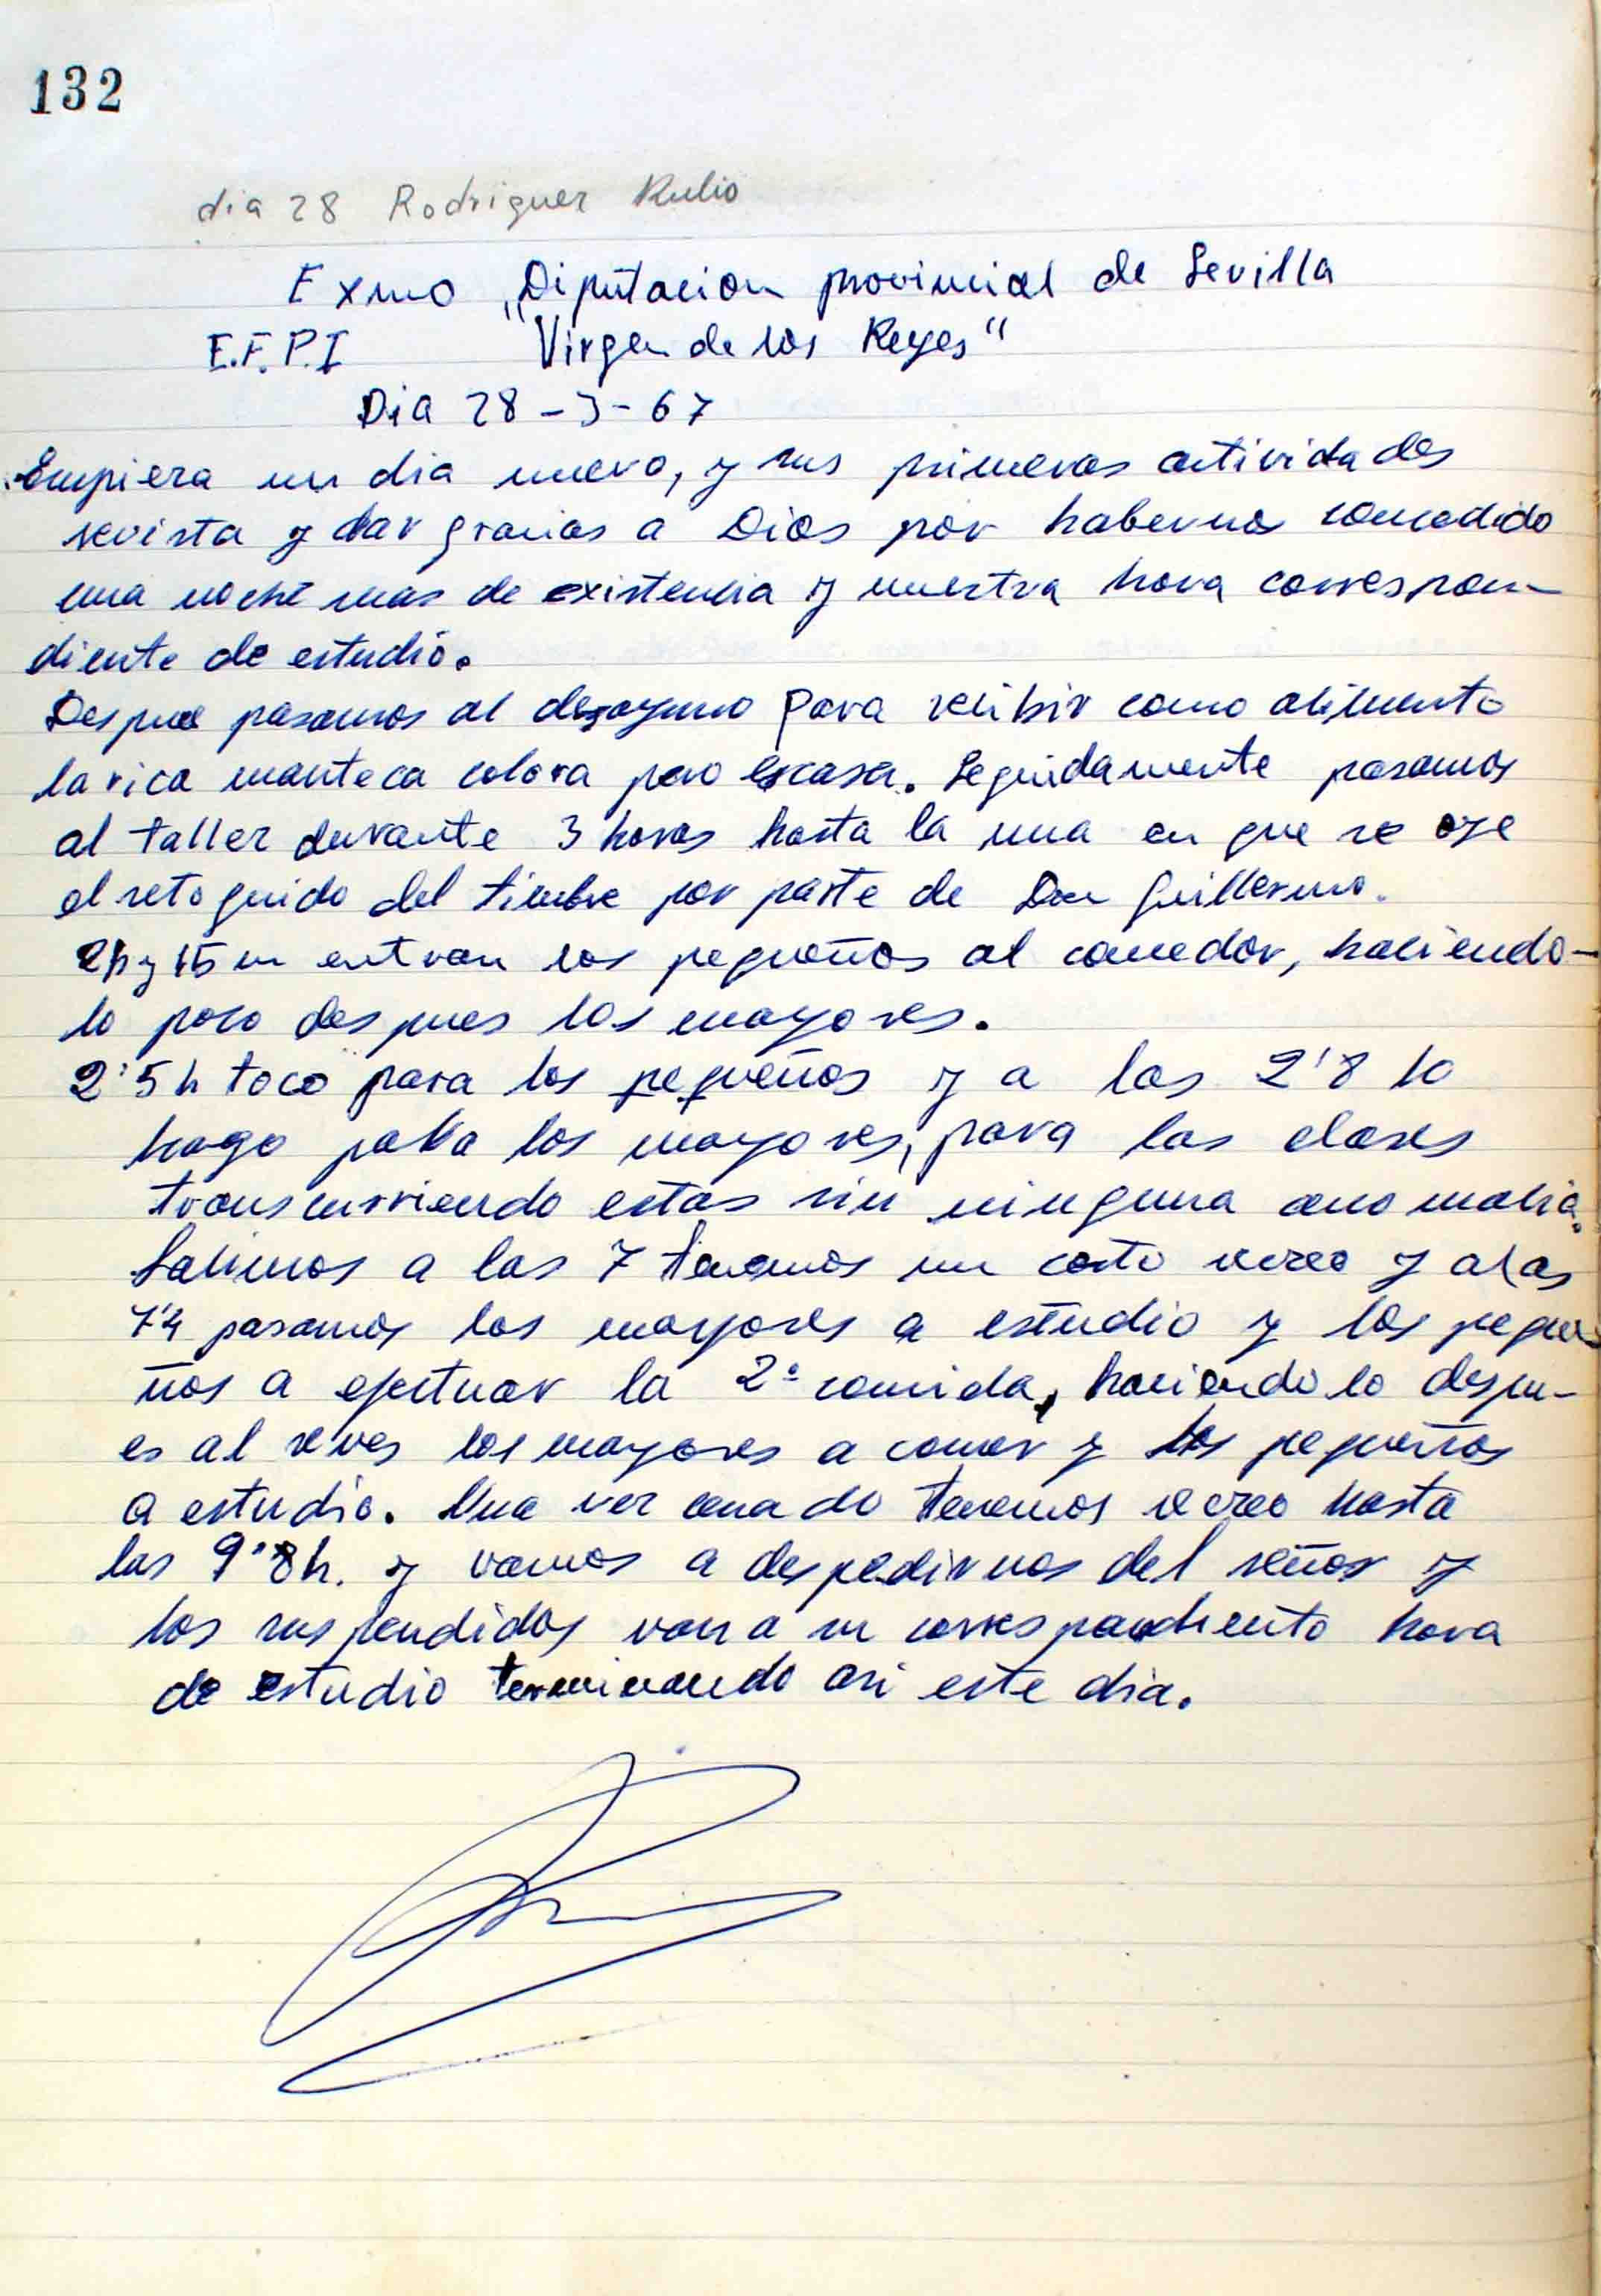 132
dia 28 Rodriguez Rubio
Exmo „Diputacion provincial de Sevilla
E.F.P.I Virgen de los Reyes"
Dia 28-3-67
Empieza un dia nuevo, y sus primeras actividades
revista y dar gracias a Dios por habernos concedido
una noche mas de existencia y nuestra hora correspon-
diente de estudio.
Despues pasamos al desayuno para recibir como alimento
la rica manteca colora pero escasa. Seguidamente pasamos
al taller durante 3 horas hasta la una en que se oye
el seto guido del timbre por parte de Don Guillermo.
2h y 15 m entran los pequeños al comedor, haciendo-
lo poco despues los mayores.
2'5 h toco para los pequeños y a las 2'8 lo
hago para los mayores, para las clases
transcurriendo estas sin ninguna anomalia.
Salimos a las 7 tenemos un corto recreo y a las
7'4 pasamos los mayores a estudio y los peque
ños a efectuar la 2ª comida, haciendolo despu-
es al reves los mayores a comer y los pequeños
a estudio. Una vez cenado tenemos recreo hasta
las 9'8 h. y vamos a despedirnos del señor y
los suspendidos van a su correspondiente hora
de estudio terminando asi este dia.